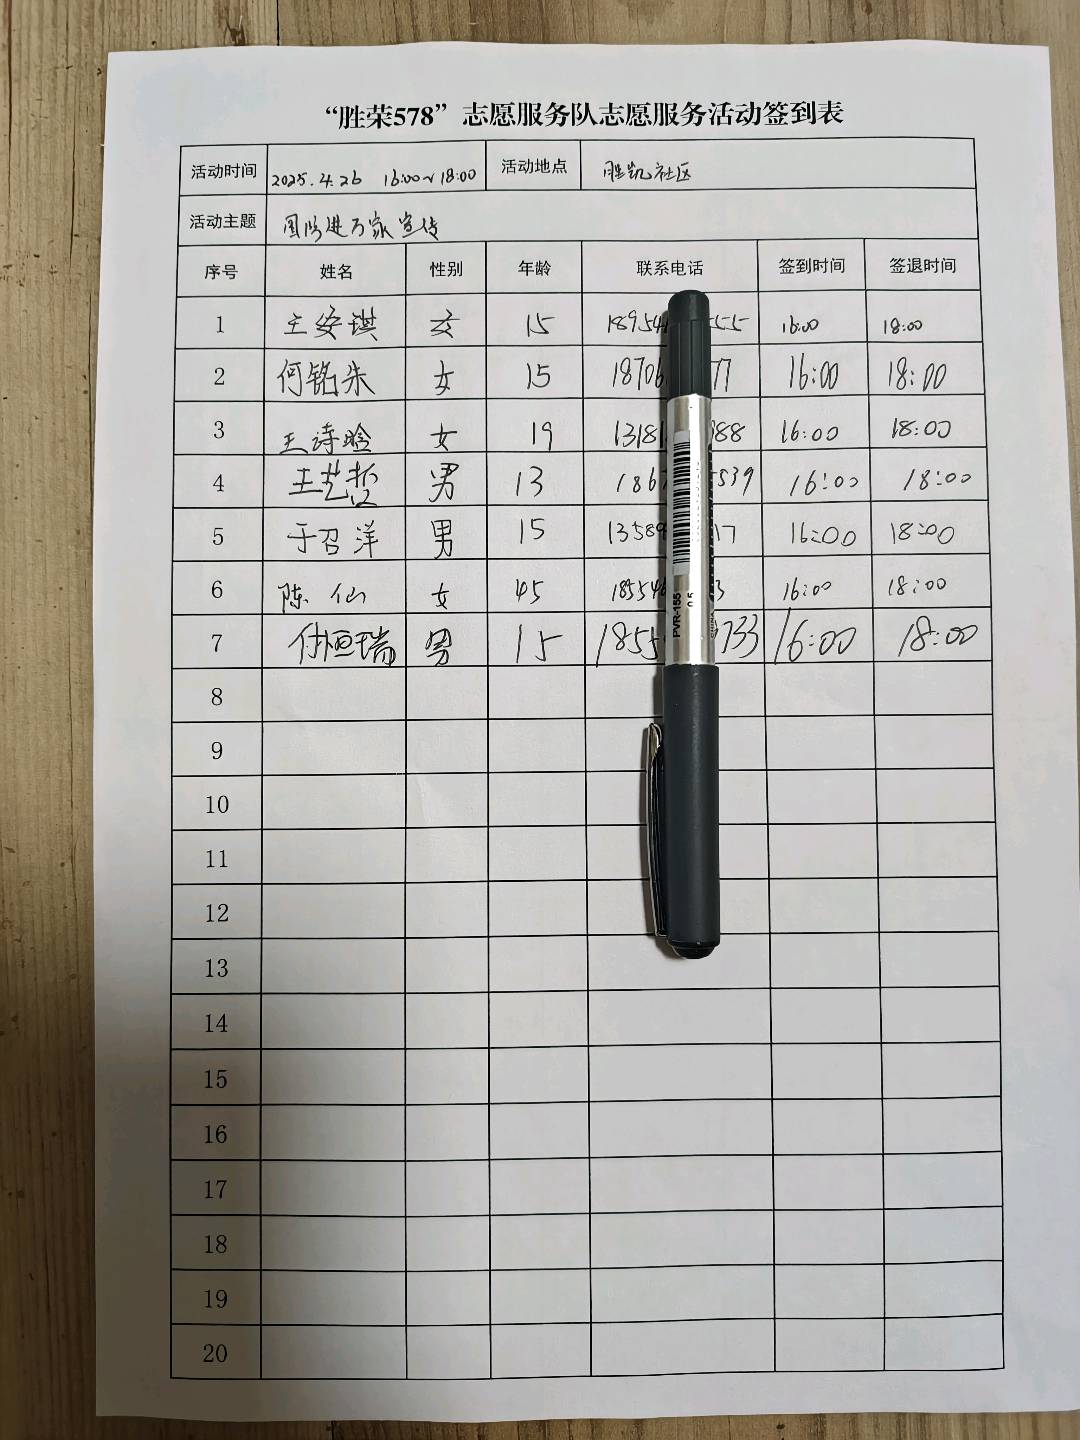 “胜荣578”志愿服务队志愿服务活动签到表
活动时间 2025.4.26 16:00~18:00 活动地点 胜凯社区
活动主题 国防进万家宣传
序号 姓名 性别 年龄 联系电话 签到时间 签退时间
1 王安琪 女 15 18954 555 16:00 18:00
2 何铭朱 女 15 18706 77 16:00 18:00
3 王诗晗 女 19 1318 988 16:00 18:00
4 王艺哲 男 13 186 5539 16:00 18:00
5 于召洋 男 15 13589 17 16:00 18:00
6 陈仙 女 45 18554 3 16:00 18:00
7 付恒瑞 男 15 1855 733 16:00 18:00
8
9
10
11
12
13
14
15
16
17
18
19
20
PVR-155 0.5
CHINA